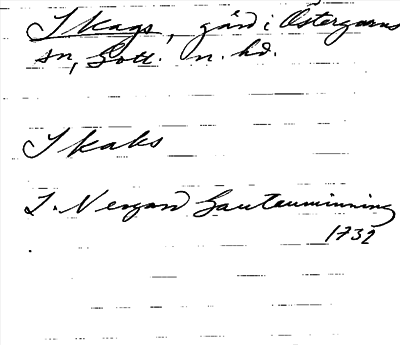 Skags, gård i Östergarns
sn, Gotl. n. hd.
Skaks
L. Nergard Gautauminning
1732